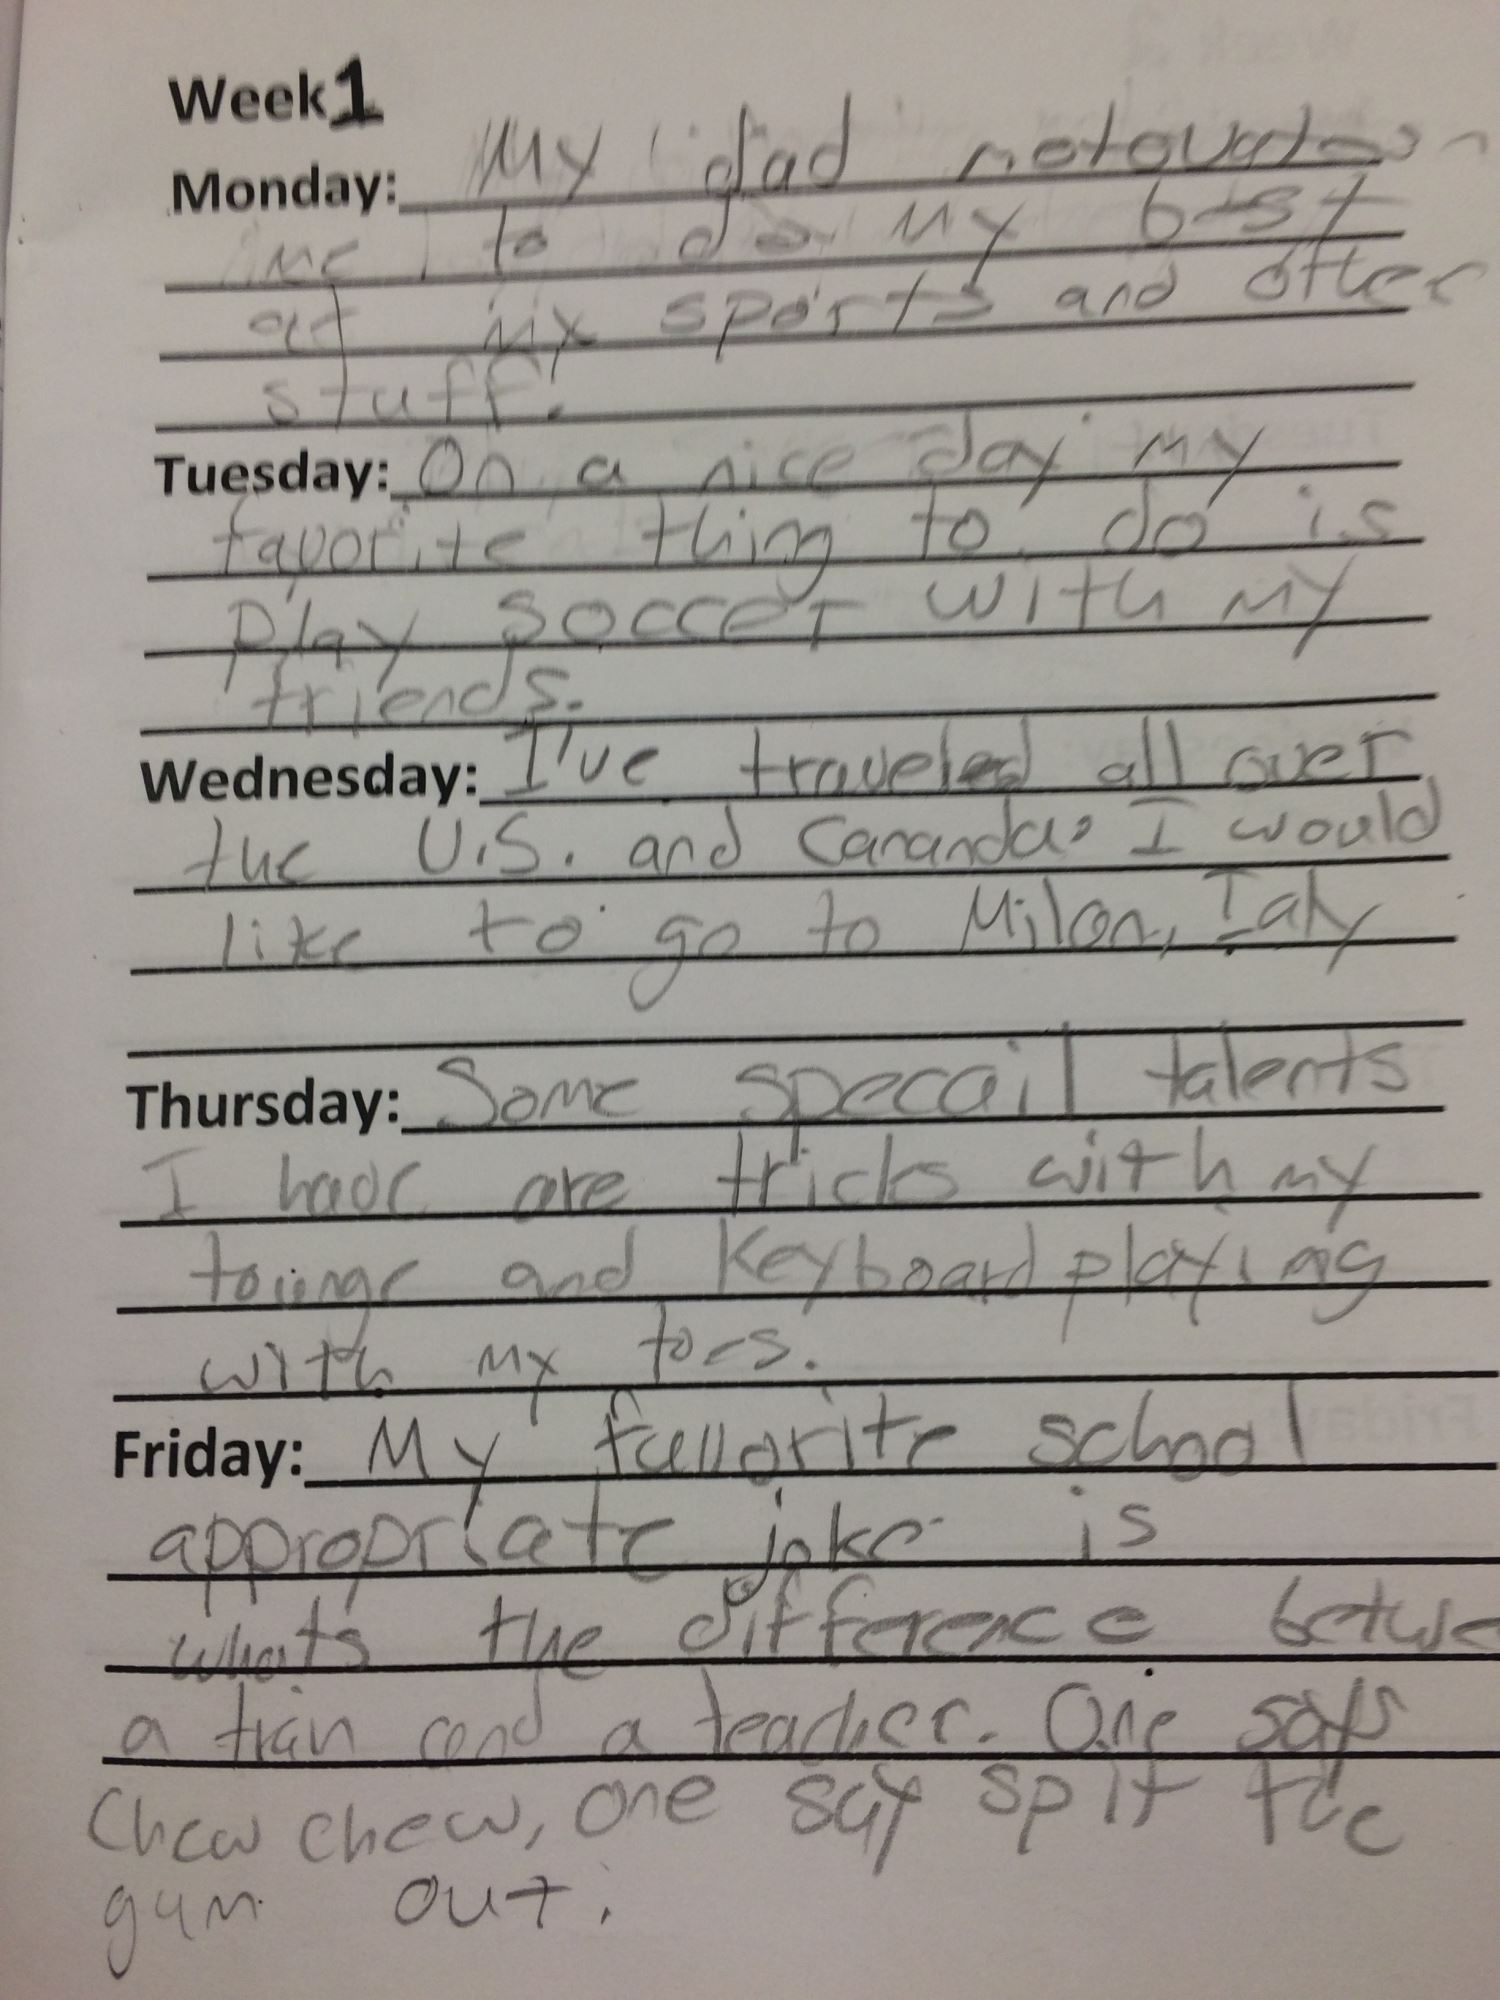 Week 1
Monday: My dad motovates
me to do my best
at my sports and other
stuff.
Tuesday: On a nice day my
favorite thing to do is
play soccer with my
friends.
Wednesday: I've traveled all over
the U.S. and Cananda. I would
like to go to Milan, Italy
Thursday: Some specail talents
I have are tricks with my
tounge and Keyboard playing
with my toes.
Friday: My favorite school
appropriate joke is
whats the difference betwe
a trian and a teacher. One says
Chew chew, one say spit the
gum out.